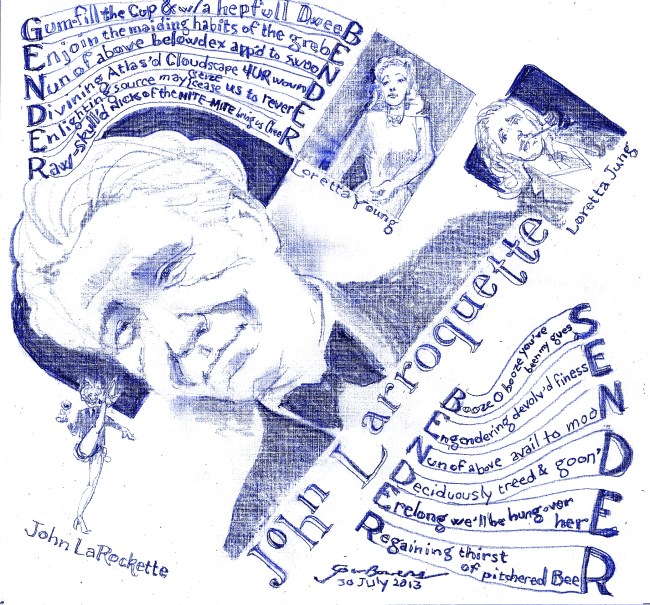 Gum-fill the Cup & w/a hepfull DweeB
Enjoin the maiding habits of the grebE
Nun of above belowdex app'd to swooN
Divining Atlas'd Cloudscape 4UR wounD
Enlighting source may seize us to reverE
cease
Raw-skull'd Ricks of the NITE-MITE bring us CheeR
GENDER
BENDER
Loretta Young
Loretta Jung
John Larroquette
John LaRockette
Booze O booze you've been my gueS
Engendering devolv'd finessE
Nun of above avail to mooN
Deciduously treed & goon'D
Erelong we'll be hungover herE
Regaining thirst of pitchered BeeR
BENDER
SENDER
30 July 2013